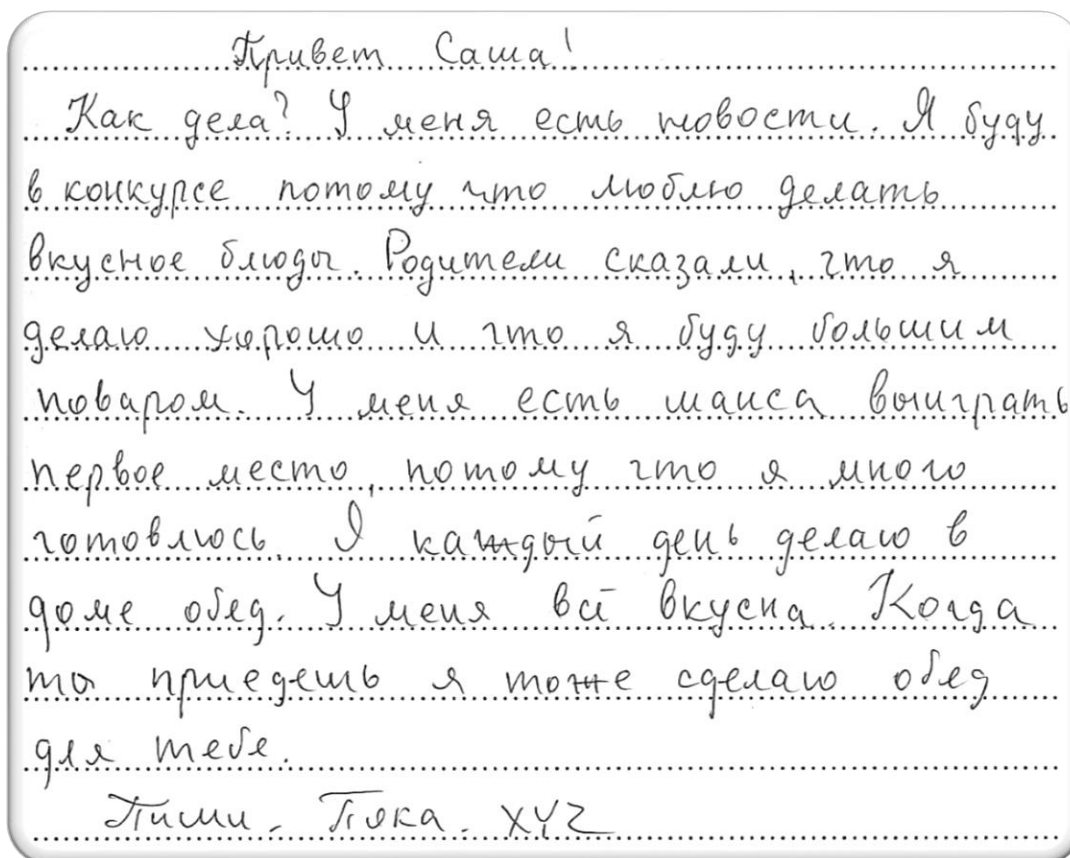 Привет Саша!
Как дела? У меня есть новости. Я буду
в конкурсе потому что люблю делать
вкусное блюды. Родители сказали, что я
делаю хорошо и что я буду большим
поваром. У меня есть шанса выиграть
первое место, потому что я много
готовлюсь. Я каждый день делаю в
доме обед. У меня всё вкусна. Когда
ты приедешь я тоже сделаю обед
для тебе.
Пиши. Пяка. XYZ